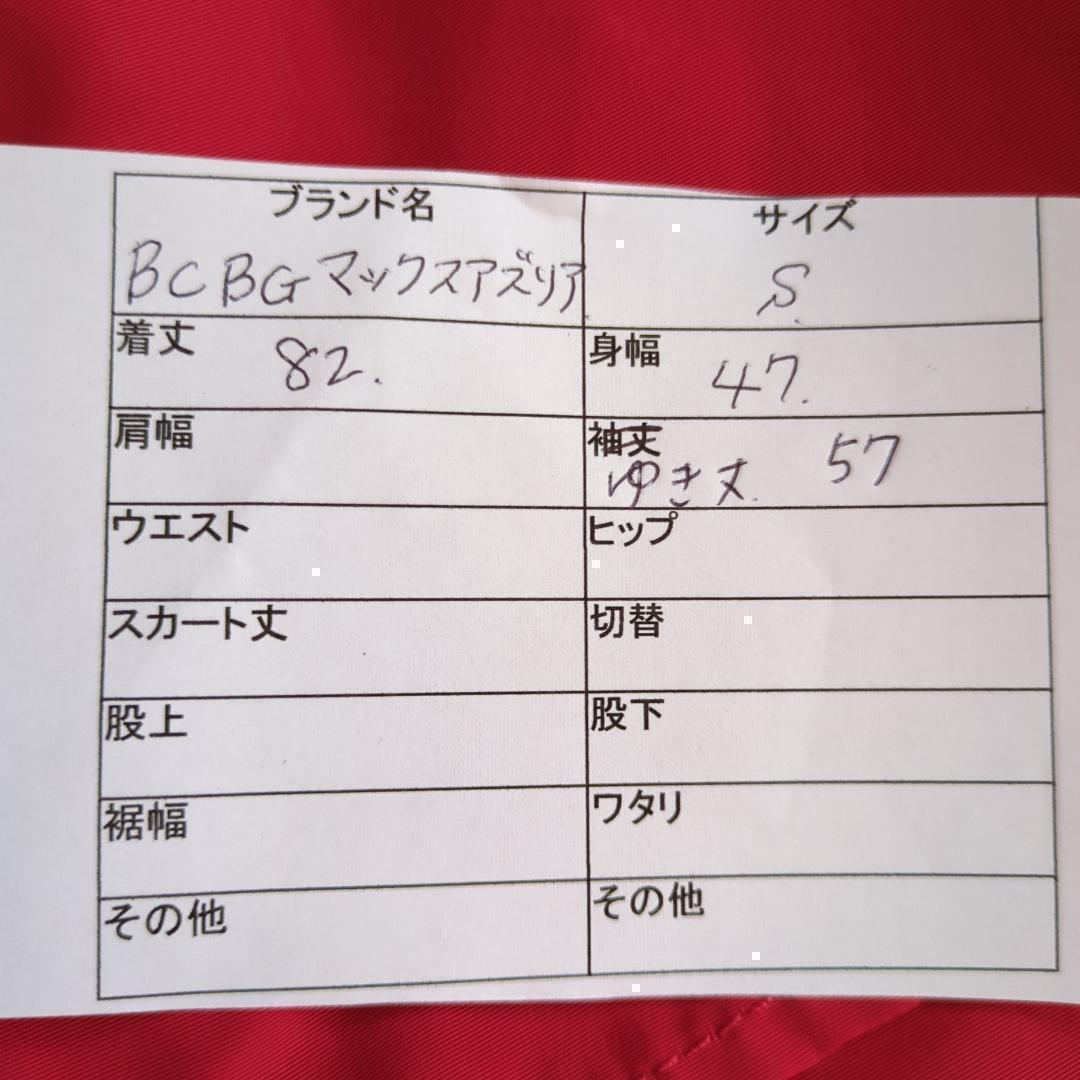 ブランド名 サイズ
BCBGマックスアズリア S.
着丈 82. 身幅 47.
肩幅 袖丈
ゆき丈. 57
ウエスト ヒップ
スカート丈 切替
股上 股下
裾幅 ワタリ
その他 その他